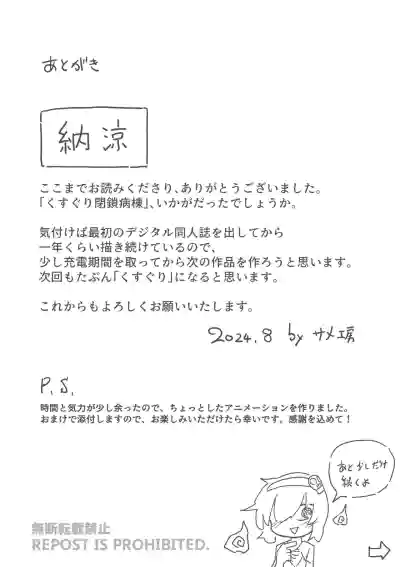 あとがき
納涼
ここまでお読みくださり、ありがとうございました。
「くすぐり閉鎖病棟」、いかがだったでしょうか。
気付けば最初のデジタル同人誌を出してから
一年くらい描き続けているので、
少し充電期間を取ってから次の作品を作ろうと思います。
次回もたぶん「くすぐり」になると思います。
これからもよろしくお願いいたします。
2024.8 by サメ工房
P.S.
時間と気力が少し余ったので、ちょっとしたアニメーションを作りました。
おまけで添付しますので、お楽しみいただけたら幸いです。感謝を込めて！
あと少しだけ
続くよ
無断転載禁止
REPOST IS PROHIBITED.